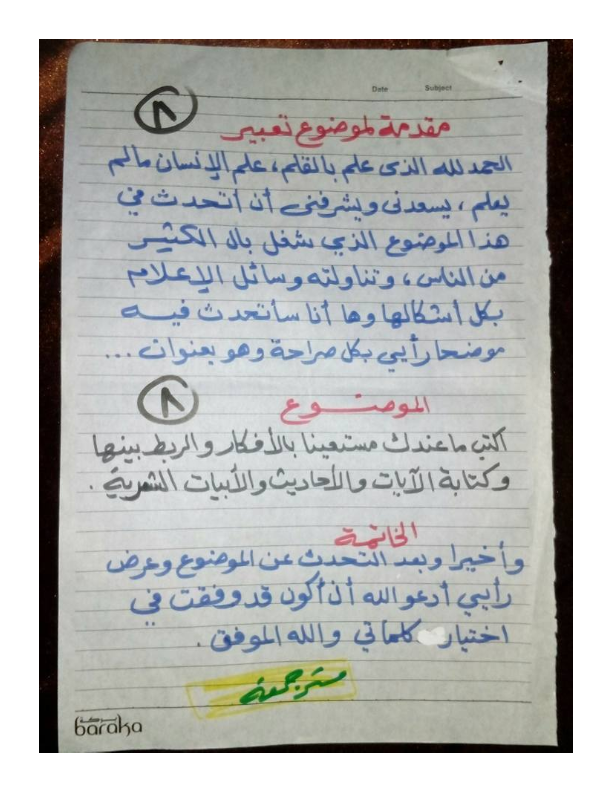 Date Subject
٨
مقدمة لموضوع تعبير
الحمد لله الذى علم بالقلم، علم الإنسان مالم
يعلم، يسعدنى ويشرفنى أن أتحدث في
هذا الموضوع الذي شغل بال الكثيـــر
من الناس، وتناولته وسائل الإعلام
بكل أشكالها وها أنا سأتحدث فيـــه
موضحا رأيي بكل صراحة وهو بعنوان ...
٨
الموضـــوع
اكتب ما عندك مستعينا بالأفكار والربط بينها
وكتابة الآيات والأحاديث والأبيات الشعرية .
الخاتمة
وأخيرا وبعد التحدث عن الموضوع وعرض
رأيي أدعو الله أن أكون قد وفقت في
اختيار كلماتي والله الموفق .
بركة
baraka